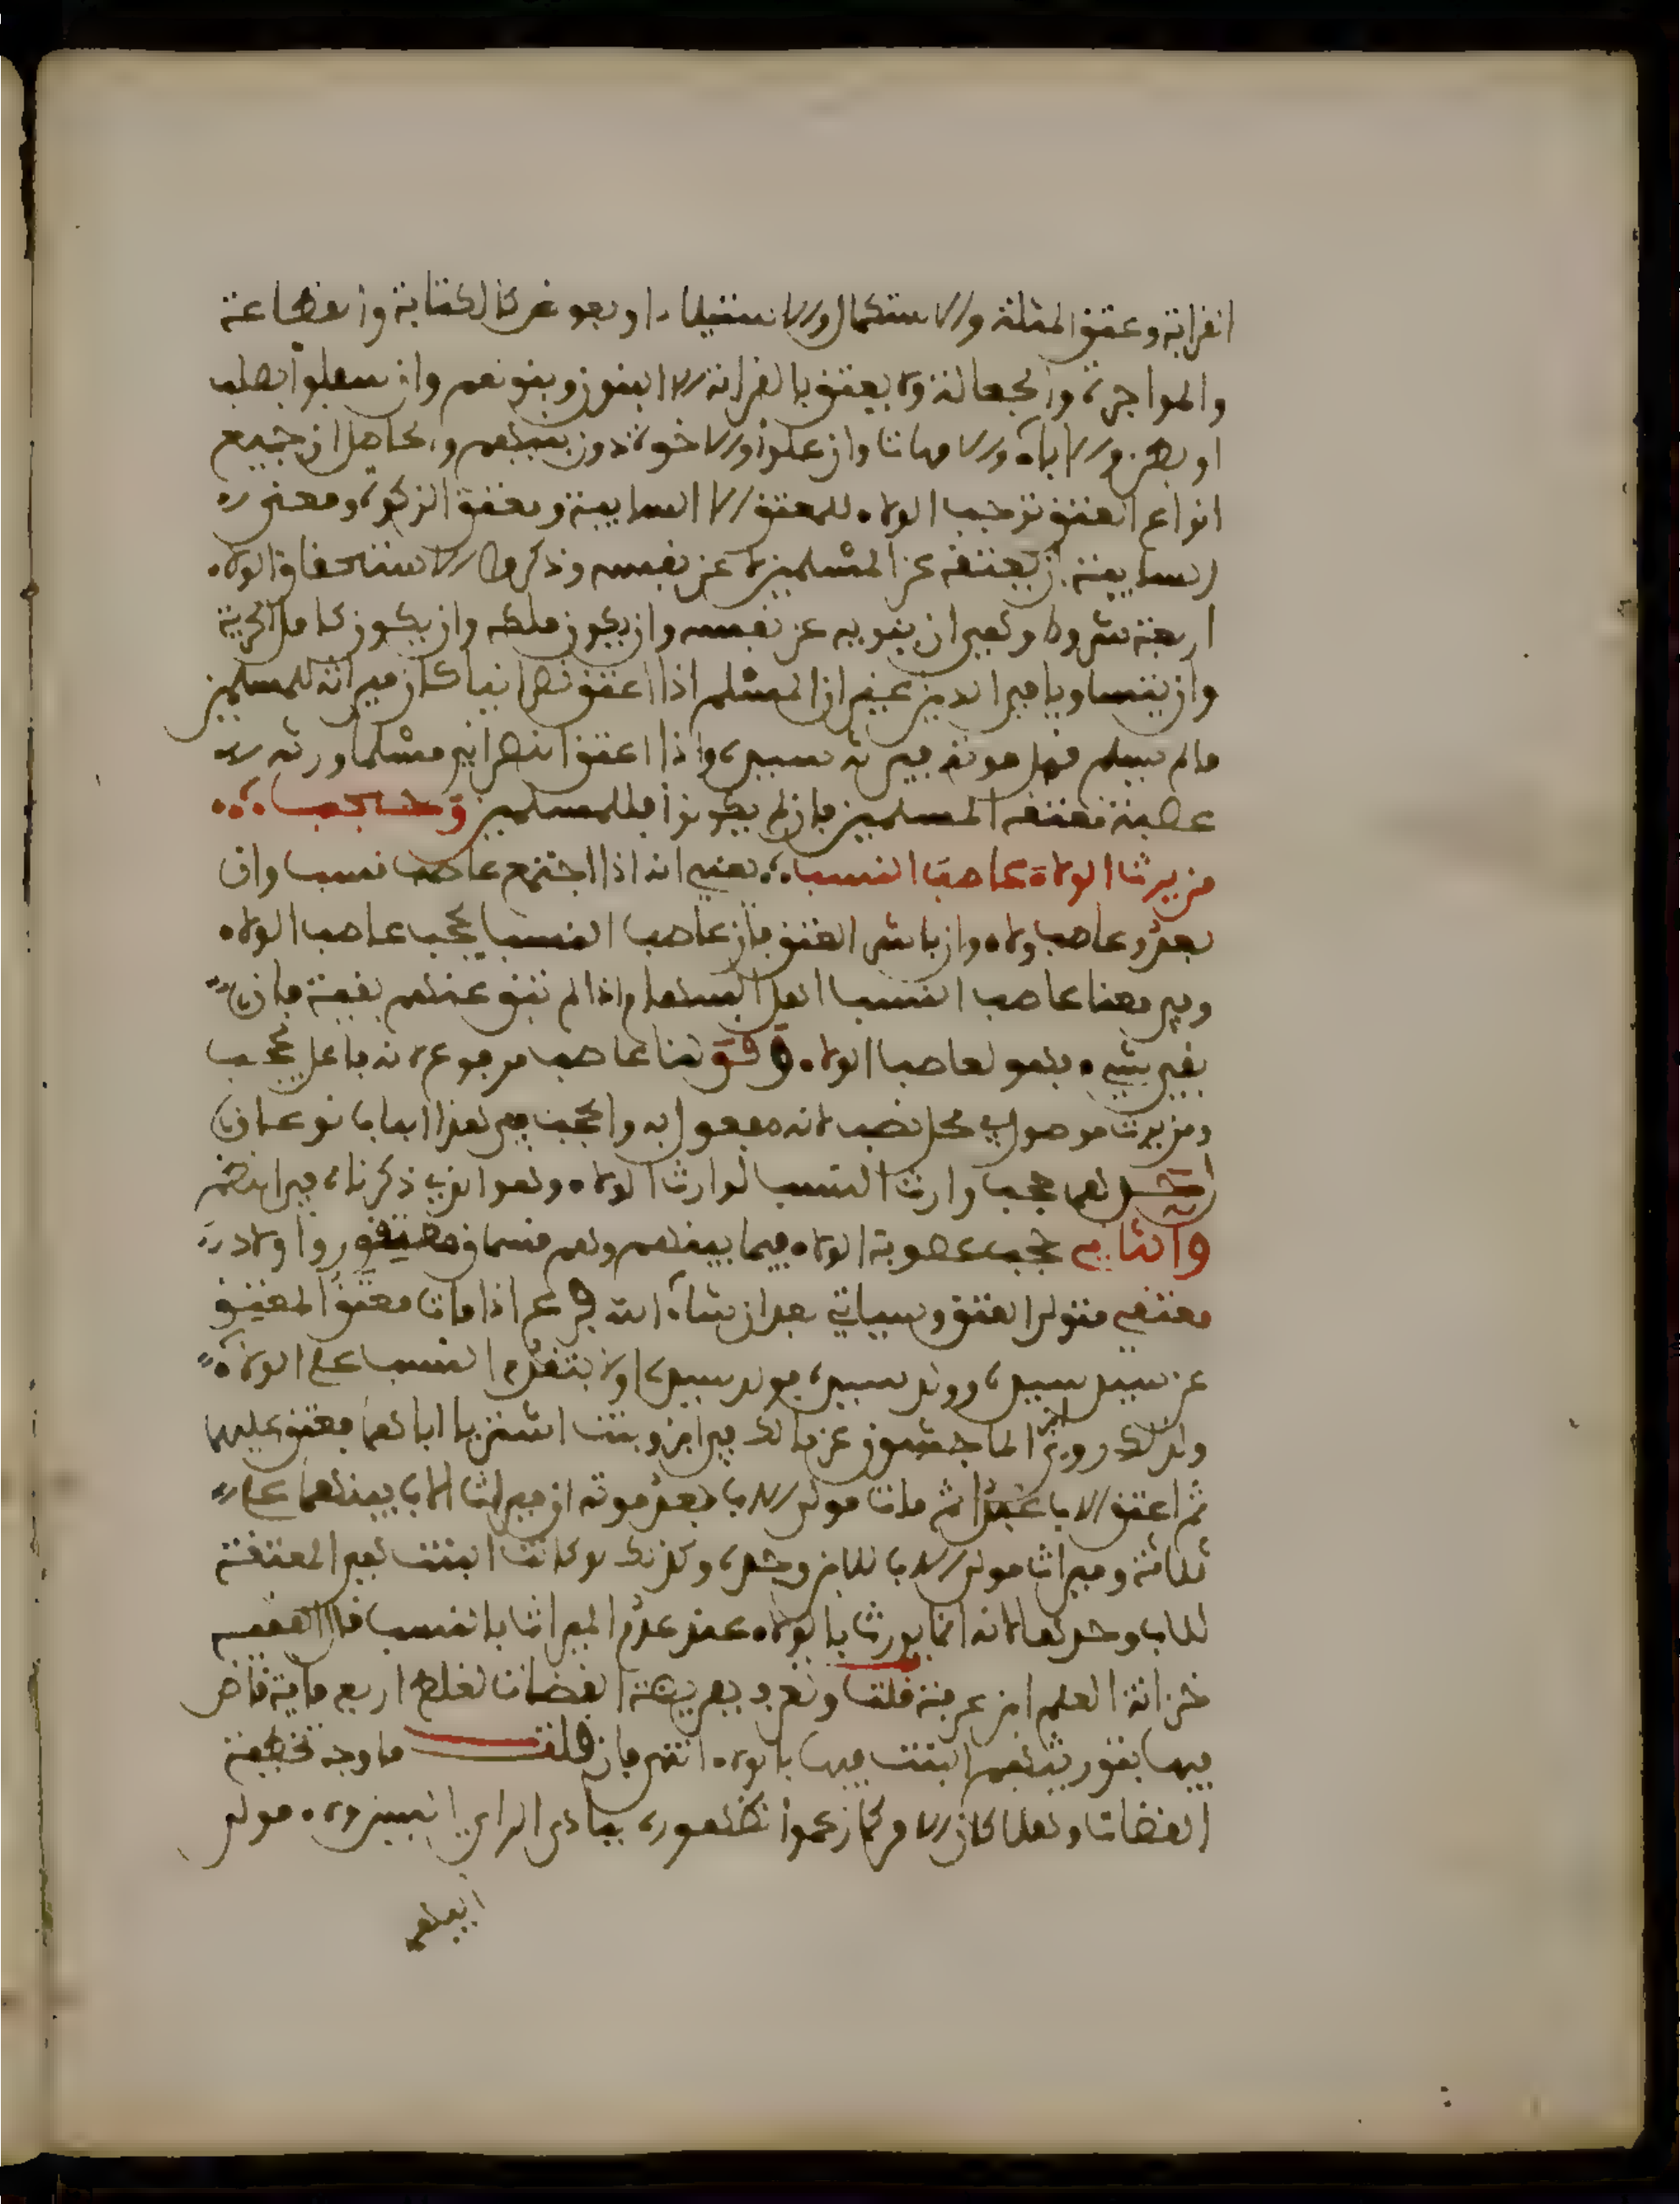 القرابة وعتق المثلة والاستكمال والاستيلاد او بعوض كالكتابة والقطاعة
والمواجرة والجعالة ولا يعتق بالقرابة الا البنون وبنوهم وان سفلوا بصلب
او بطن والاباء والامهات وان علوا والاخوة دون بنيهم والحاصل ان جميع
انواع العتق توجب الولاء للمعتق الا السايبة ومعتق الزكوة ومعنى
السايبة ان يعتقه عن المسلمين لا عن نفسه وذكر والاستحقاق الولاء
اربعة شروط وهي ان ينويه عن نفسه وان يكون ملكه وان يكون كامل الحرية
وان يتساويا في الدين عينه ان المسلم اذا اعتق نصرانيا كان ميراثه للمسلمين
ما لم يسلم قبل موته فيرثه سيده واذا اعتق النصراني مسلما ورثه
عصبة معتقه المسلمين فان لم يكونوا فللمسلمين وحجب
من يرث الولاء عاصب النسب يعني انه اذا اجتمع عاصب نسب وان
بعد وعاصب ولاء وان باشر العتق فان عاصب النسب يحجب عاصب الولاء
وفي معنا عاصب النسب اهل السهام اذا لم تبق عنهم بقية فان
بقي شيء فهو لعاصب الولاء وقولنا عاصب مرفوع لانه فاعل يحجب
ومن يرث موصول في محل نصب لانه مفعول به والحجب في هذا الباب نوعان
احدهما حجب وارث النسب لوارث الولاء وهو الذي ذكرناه في النظم
والثاني حجب عصوبة الولاء فيما بينهم وهم قسمان معتقو اولاد
معتقي متولى العتق وسياتي بعد ان شاء الله فرع اذا مات معتق المعتق
عن سيد سيده وولد سيده فولد سيده اولا بتقدم النسب على الولاء
ولذلك روى ابن الماجشون عن مالك في ابن وبنت اشتريا اباهما فعتق عليهما
ثم اعتق الاب عبدا ثم مات مولى الاب بعد موته ان ميراث الاب بينهما على
ثلاثة وميراث مولى الاب للابن وحده وكذلك لو كانت البنت هي المعتقة
للاب وحدها لانه انما يورث بالولاء عند عدم الميراث بالنسب قال الفقيه
خزانة العلم ابن عرفة قلت وتعرف بفريضة القضات لغلط اربع ماية قاض
فيها بتوريثهم البنت فيها بالولاء انتهى فان قلت ما وجه تخطية
القضات وهلا كان الامر كما زعموا لظهوره ببادي الراي اليس ولاء مولى
ابيهم